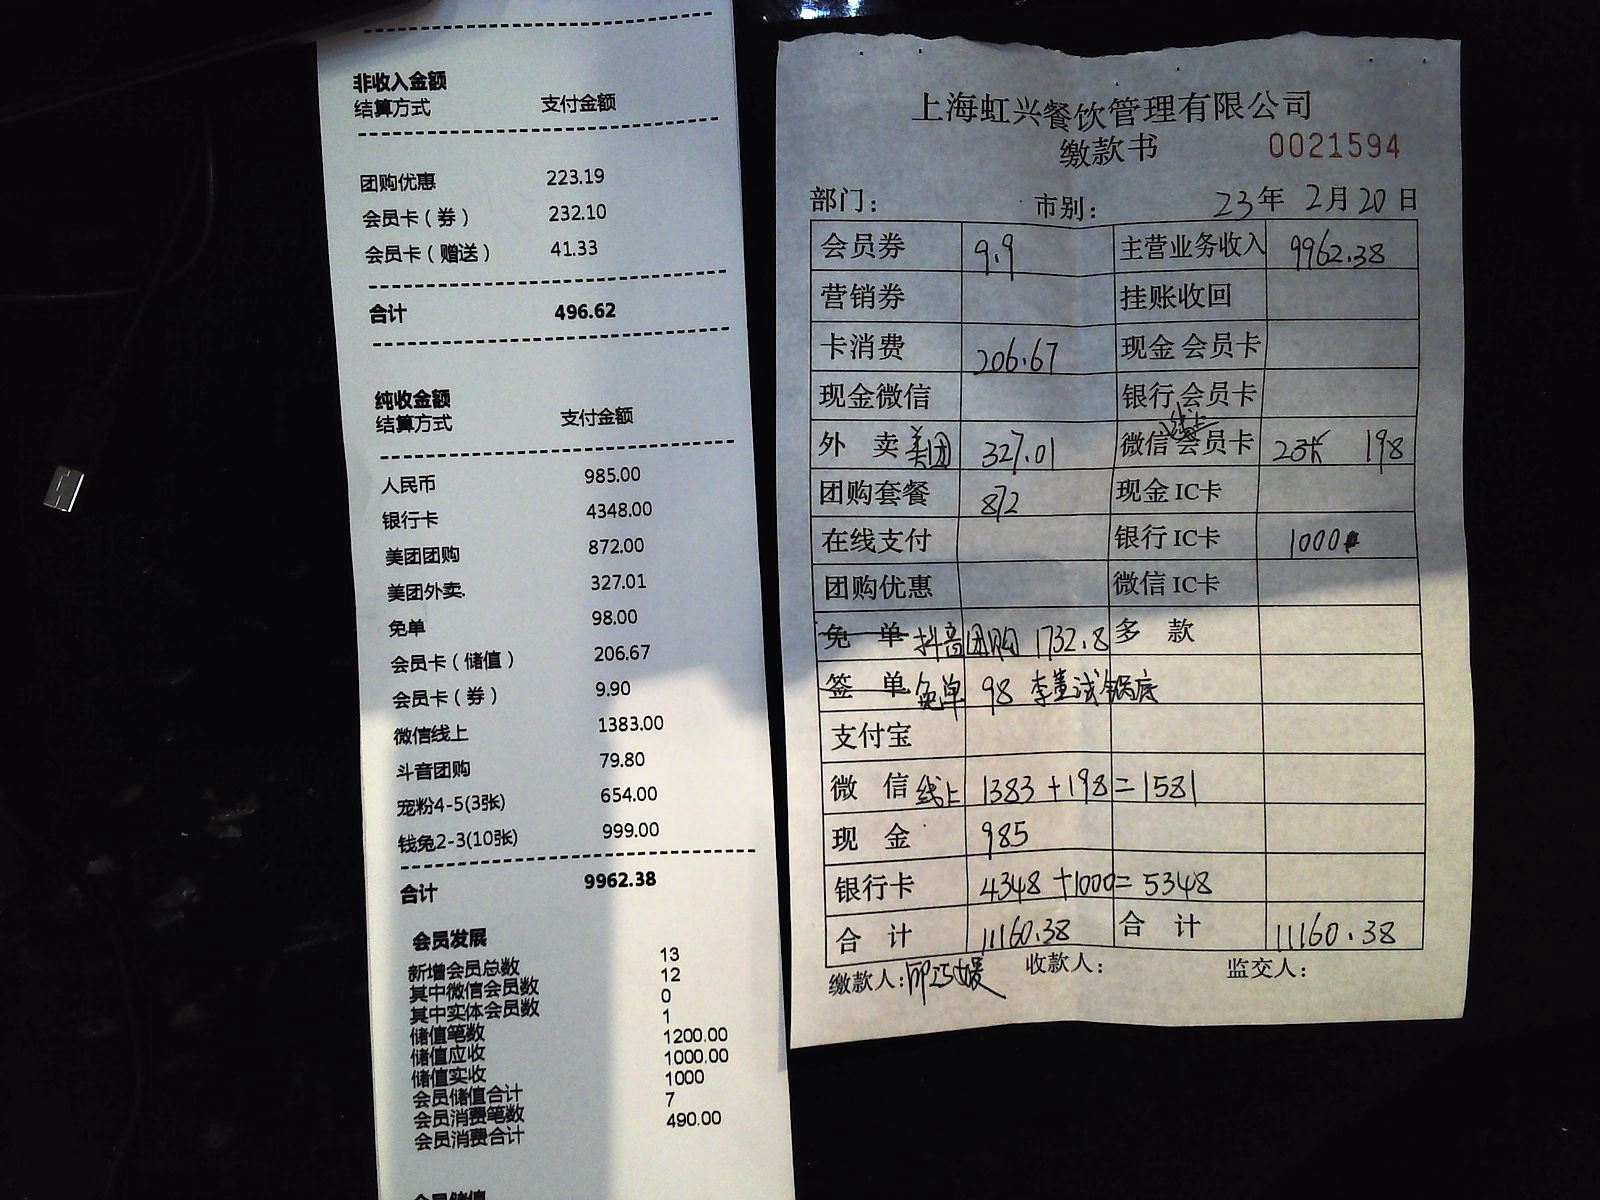 非收入金额
结算方式 支付金额
团购优惠 223.19
会员卡（券） 232.10
会员卡（赠送） 41.33
合计 496.62
纯收金额
结算方式 支付金额
人民币 985.00
银行卡 4348.00
美团团购 872.00
美团外卖. 327.01
免单 98.00
会员卡（储值） 206.67
会员卡（券） 9.90
微信线上 1383.00
斗音团购 79.80
宠粉4-5(3张) 654.00
钱兔2-3(10张) 999.00
合计 9962.38
会员发展
新增会员总数 13
其中微信会员数 12
其中实体会员数 0
储值笔数 1
储值应收 1200.00
储值实收 1000.00
会员储值合计 1000
会员消费笔数 7
会员消费合计 490.00
会员储值
上海虹兴餐饮管理有限公司
缴款书 0021594
部门： 市别： 23年 2月 20日
会员券 9.9 主营业务收入 9962.38
营销券 挂账收回
卡消费 206.67 现金会员卡
现金微信 银行会员卡
外卖 美团 327.01 微信线上会员卡 2张 198
团购套餐 872 现金IC卡
在线支付 银行IC卡 1000
团购优惠 微信IC卡
免单 抖音团购 1732.8 多款
签单 免单 98 李董试锅底
支付宝
微信 线上 1383+198=1581
现金 985
银行卡 4348+1000=5348
合计 11160.38 合计 11160.38
缴款人： 收款人： 监交人：